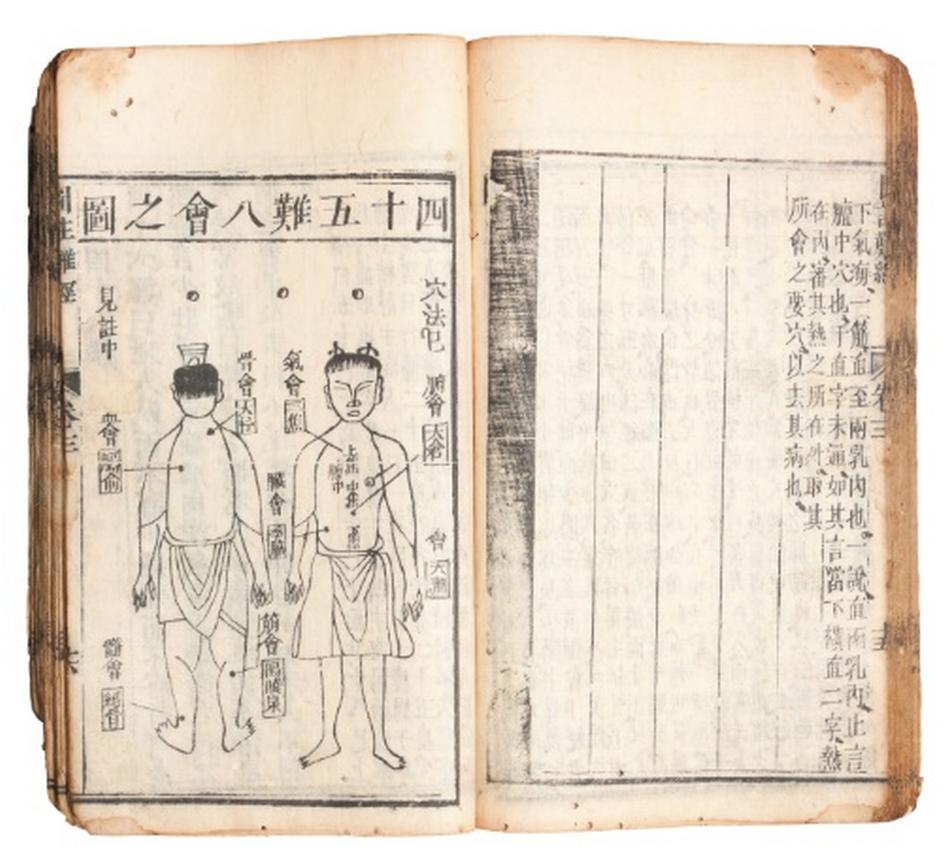 下氣海一筋直至兩乳內也一說直兩乳內止言
膻中穴也直字未通如其言當下橫直二字熱
在內審其熱之所在件取其
所會之要穴以去其病也
四十五難八會之圖
穴法
見註中
腑會
太倉
氣會
三焦
臟會
季脇
筋會
陽陵泉
骨會
血會
髓會
絕骨
卷三